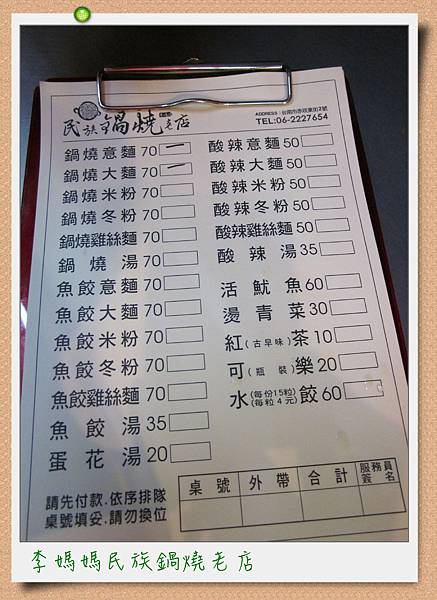 民族鍋燒老店
ADDRESS：台南市赤崁東街2號
TEL:06-2227654
鍋燒意麵 70
鍋燒大麵 70
鍋燒米粉 70
鍋燒冬粉 70
鍋燒雞絲麵 70
鍋燒湯 70
魚餃意麵 70
魚餃大麵 70
魚餃米粉 70
魚餃冬粉 70
魚餃雞絲麵 70
魚餃湯 35
蛋花湯 20
酸辣意麵 50
酸辣大麵 50
酸辣米粉 50
酸辣冬粉 50
酸辣雞絲麵 50
酸辣湯 35
活魷魚 60
燙青菜 30
紅(古早味)茶 10
可(瓶裝)樂 20
水(每份15粒)(每粒4元)餃 60
請先付款.依序排隊
桌號填妥.請勿換位
桌號 外帶 合計 服務員簽名
李媽媽民族鍋燒老店